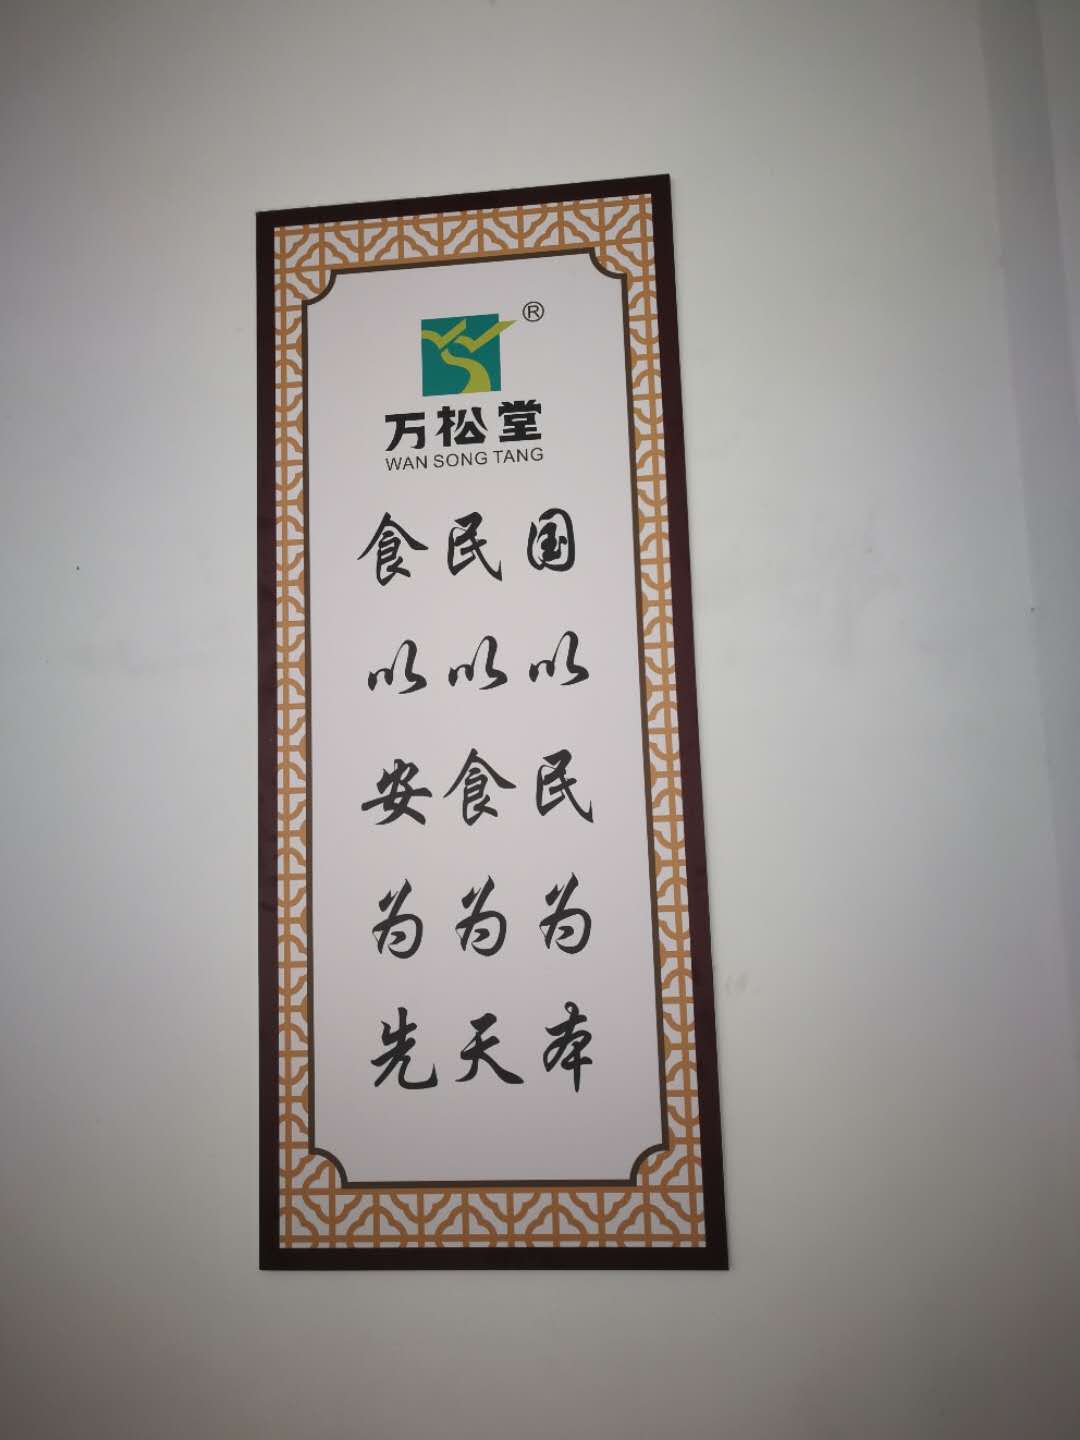 ®
万松堂
WAN SONG TANG
国以民为本
民以食为天
食以安为先